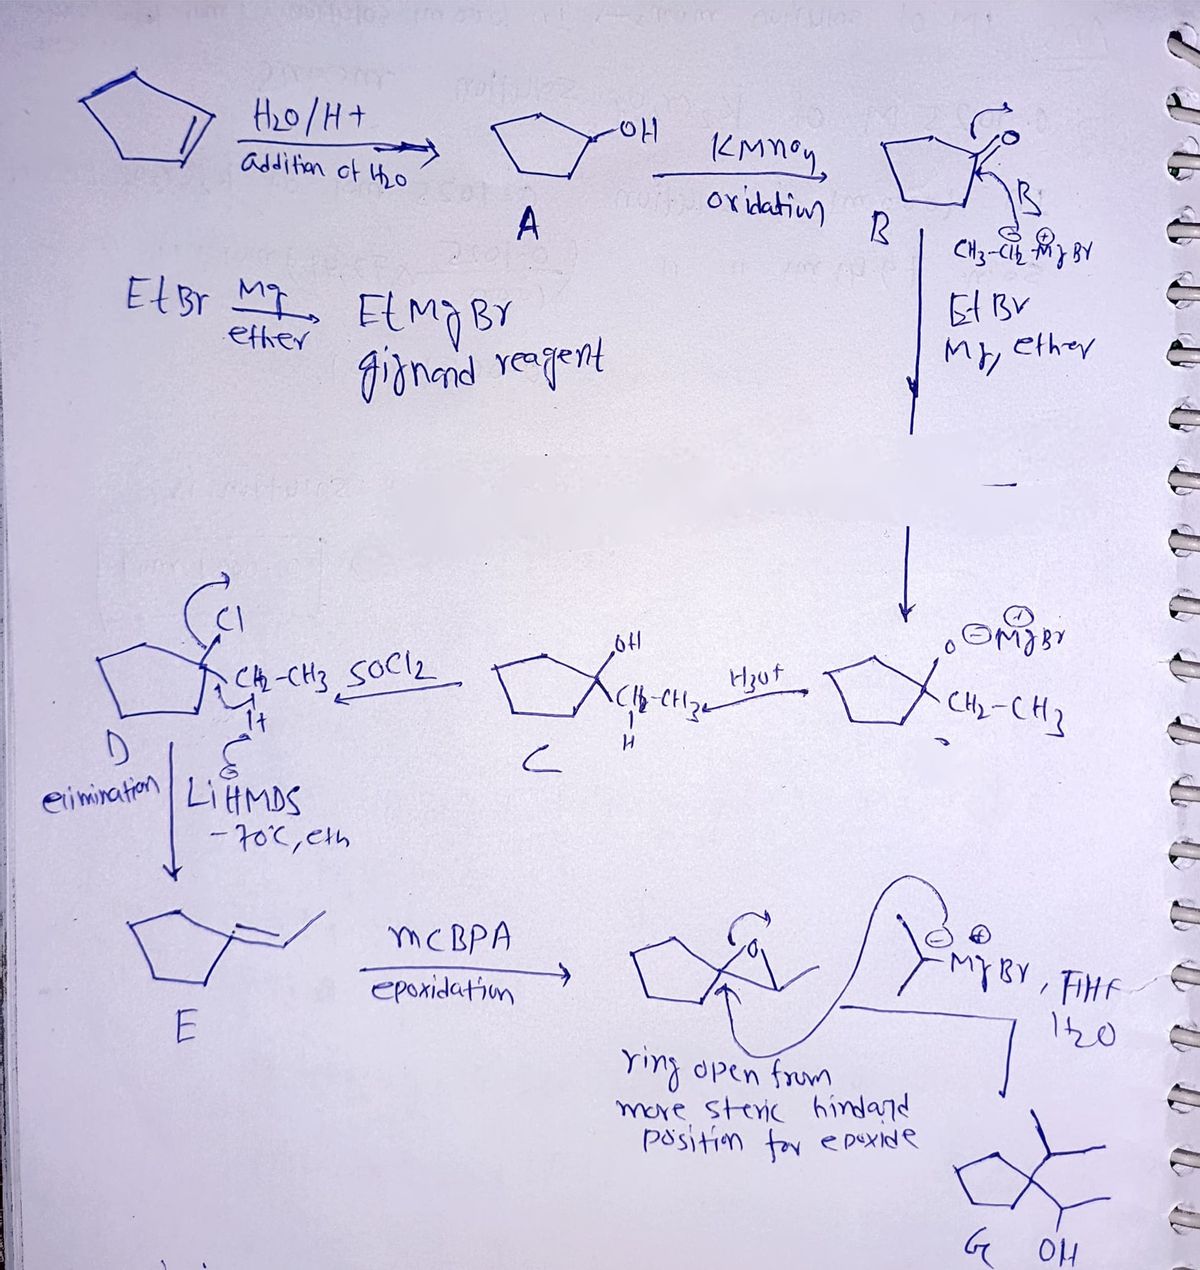 H2O/H+
addition of H2O
OH
A
KMnO4
oxidation
O
B
B
CH3-CH2 MgBr
⊖ ⊕
EtBr
Mg, ether
EtBr Mg EtMgBr
ether
grignard reagent
O ⊖ ⊕MgBr
CH2-CH3
H3O+
OH
CH2-CH3
H
C
SOCl2
Cl
CH2-CH3
H
D
elimination
LiHMDS
-70°C, eth
E
mCBPA
epoxidation
O
⊖ ⊕
MgBr, THF
H2O
ring open from
more steric hindard
position for epoxide
G OH